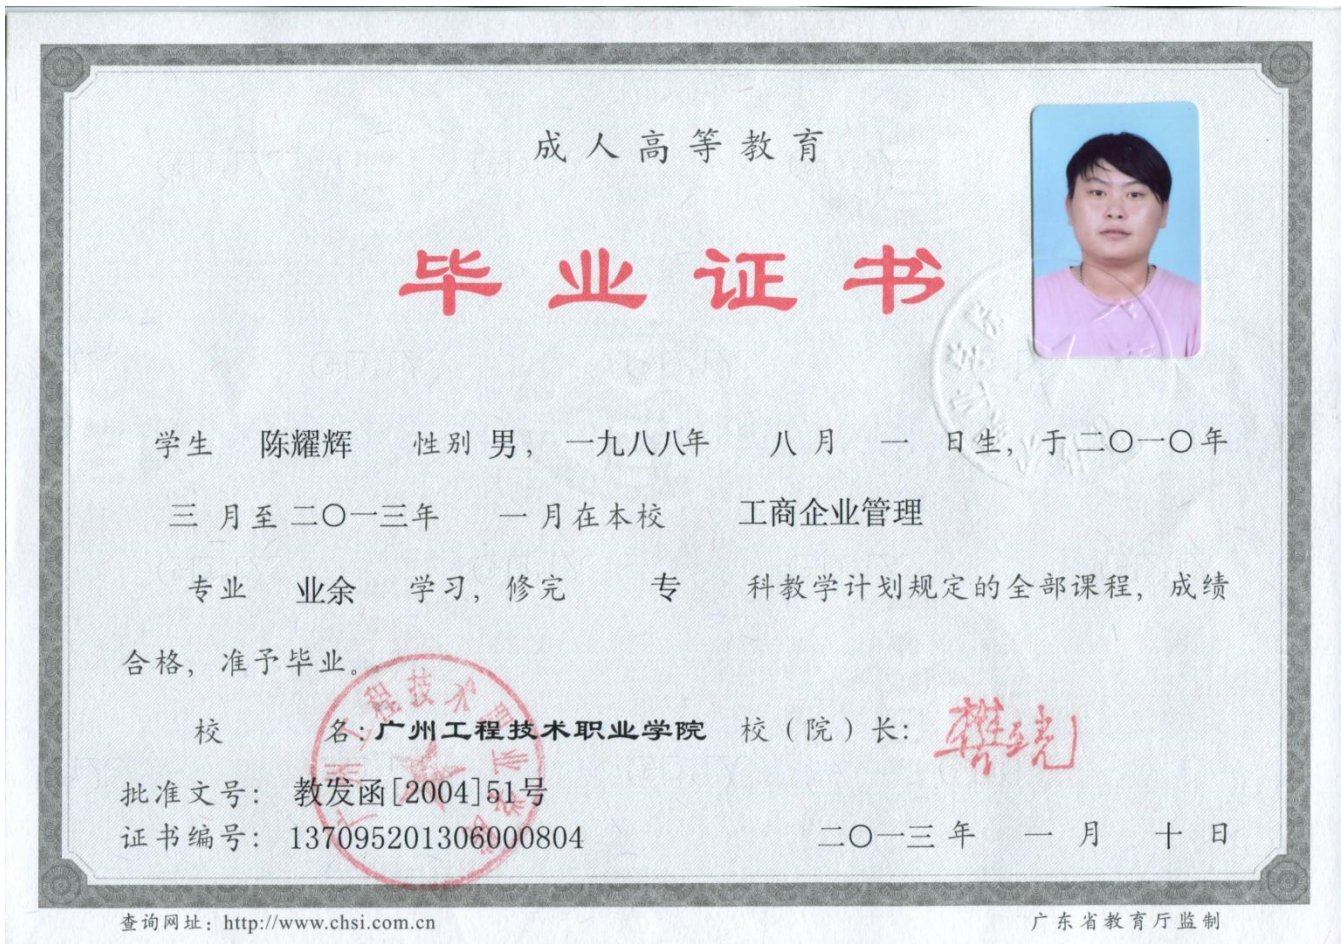 成人高等教育
毕业证书
学生 陈耀辉 性别 男， 一九八八年 八月 一 日生，于二〇一〇年
三 月至 二〇一三年 一月在本校 工商企业管理
专业 业余 学习，修完 专 科教学计划规定的全部课程，成绩
合格，准予毕业。
校 名：广州工程技术职业学院 校（院）长：
批准文号： 教发函[2004]51号
证书编号： 137095201306000804 二〇一三年 一 月 十 日
广州工程技术职业学院
查询网址：http://www.chsi.com.cn 广东省教育厅监制